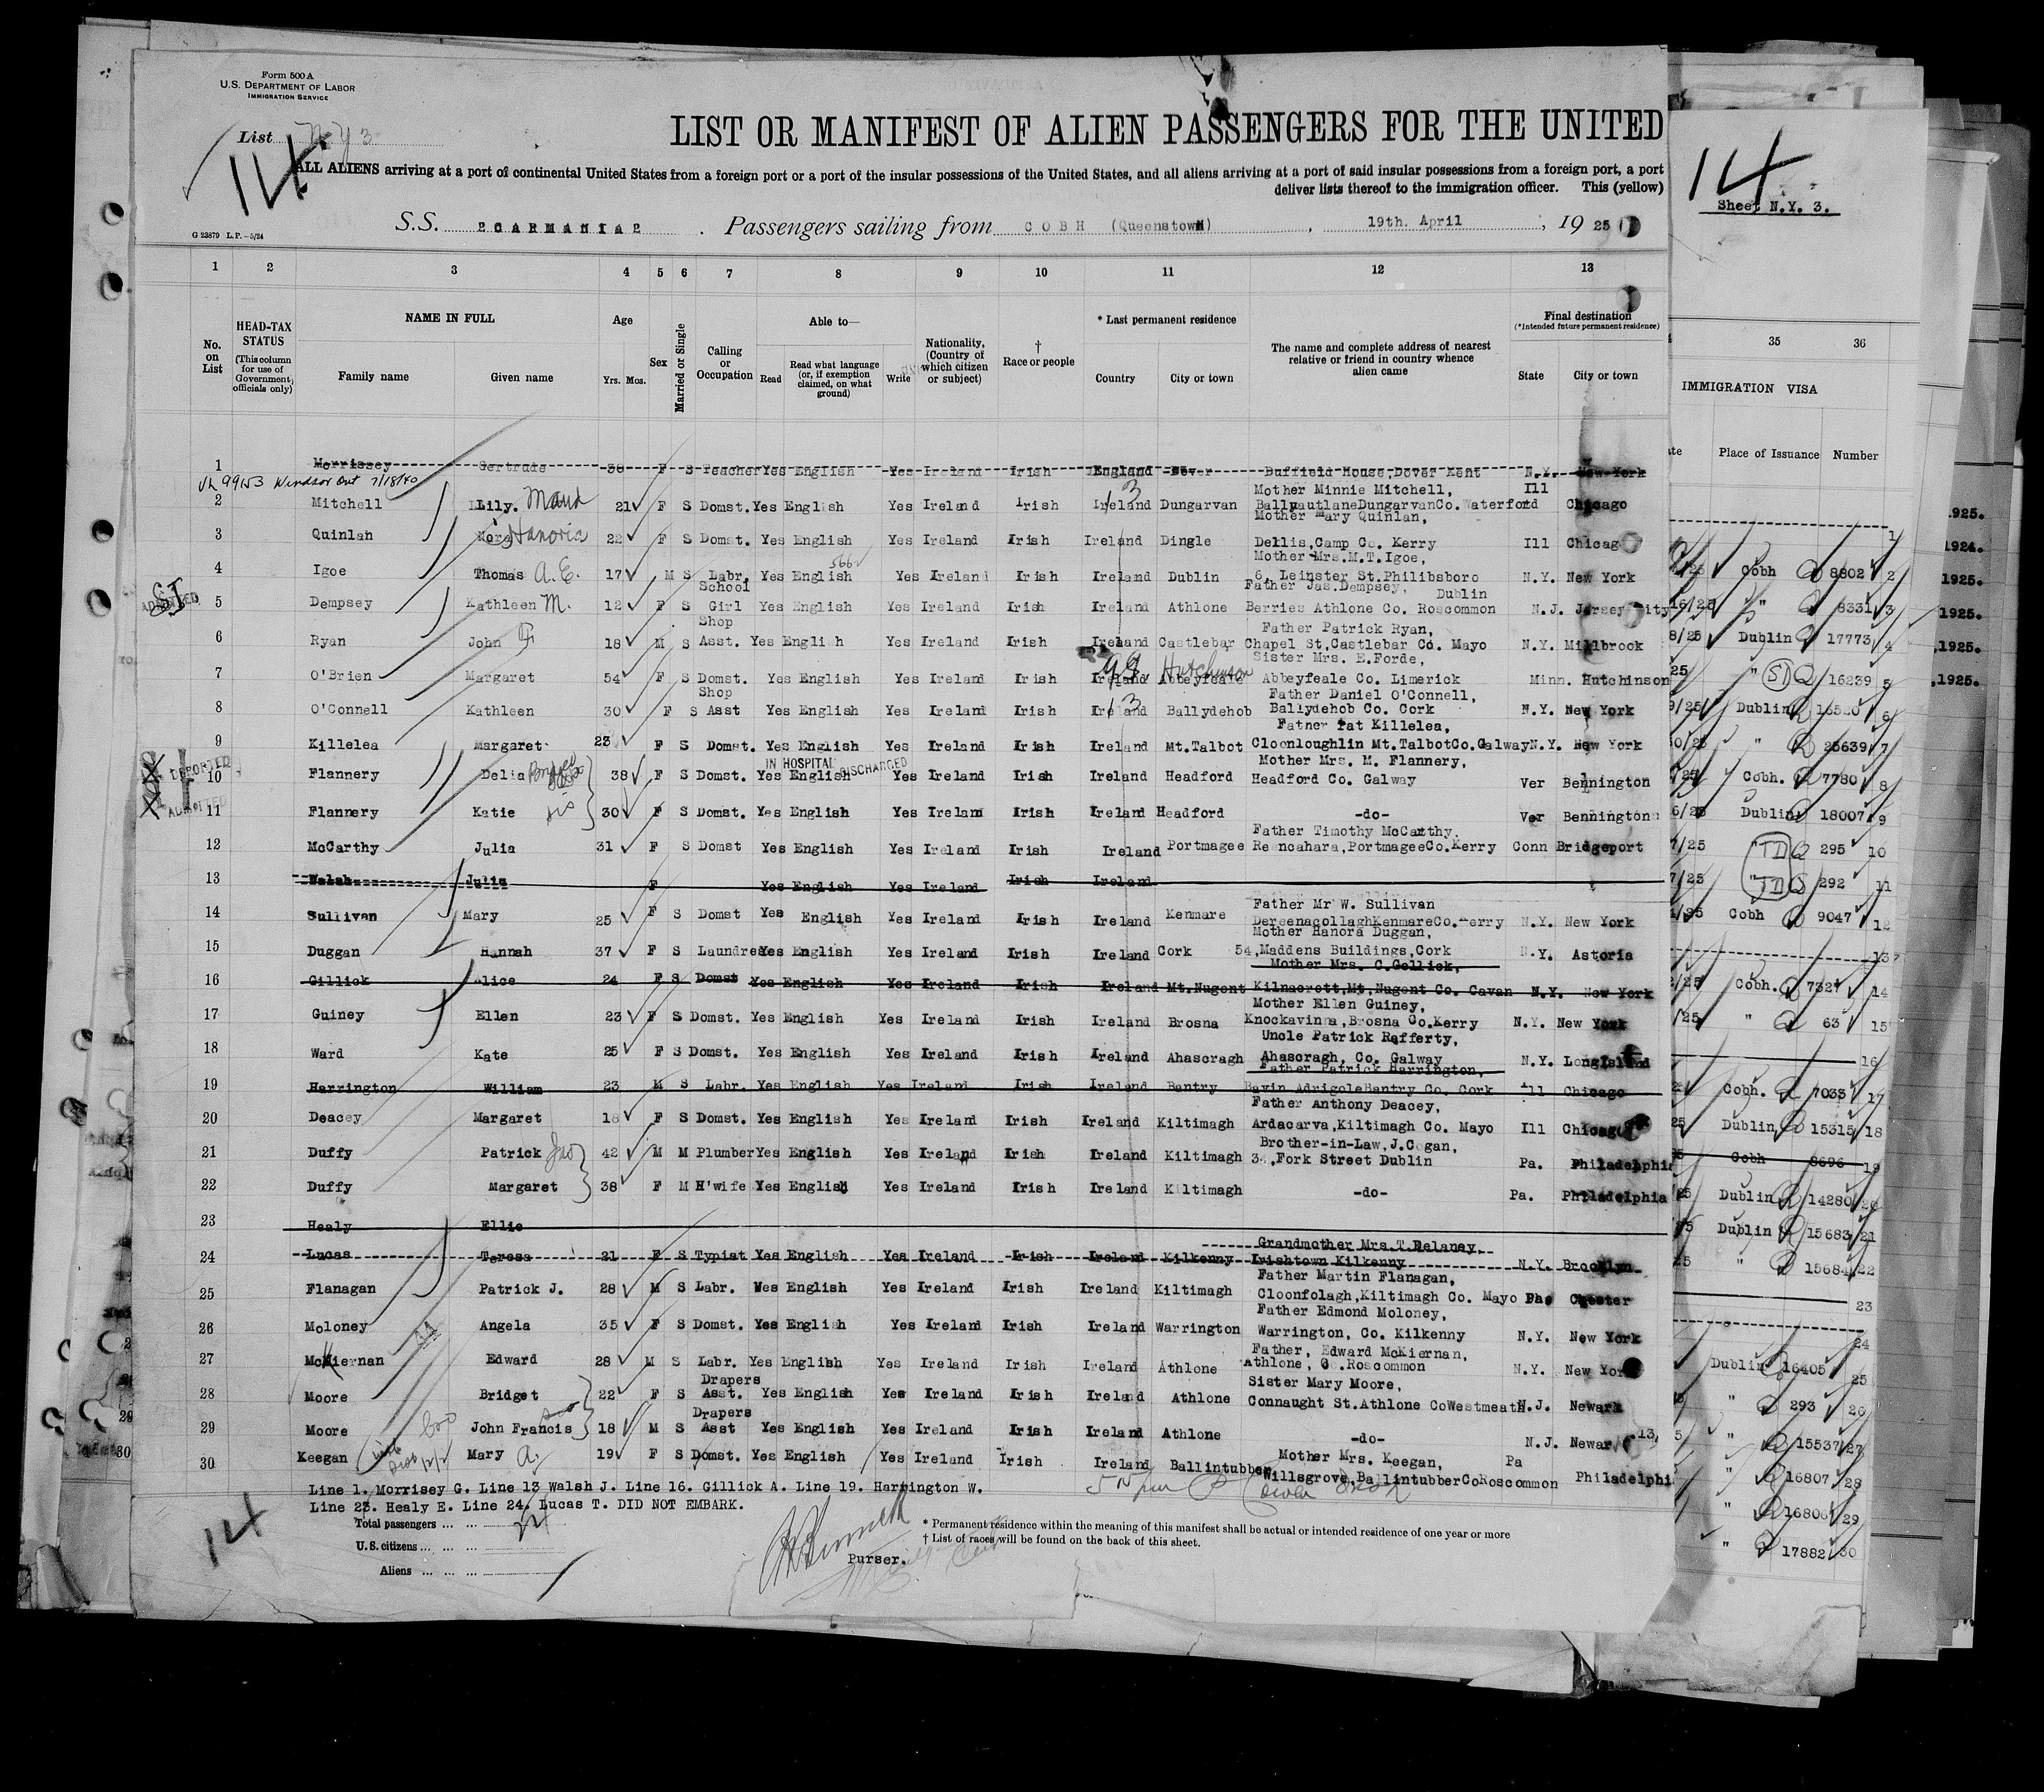 Form 500 A
U.S. DEPARTMENT OF LABOR
IMMIGRATION SERVICE
List N Y 3
14
LIST OR MANIFEST OF ALIEN PASSENGERS FOR THE UNITED
ALL ALIENS arriving at a port of continental United States from a foreign port or a port of the insular possessions of the United States, and all aliens arriving at a port of said insular possessions from a foreign port, a port
deliver lists thereof to the immigration officer. This (yellow)
14
Sheet N.Y. 3.
G 23879 L.P.—5/24
S.S. "CARMANIA" . Passengers sailing from COBH (Queenstown) , 19th. April , 19 25
1 2 3 4 5 6 7 8 9 10 11 12 13
35 36
No. on List
HEAD-TAX STATUS
(This column for use of Government officials only)
NAME IN FULL
Family name Given name
Age
Yrs. Mos.
Sex
Married or Single
Calling or Occupation
Able to—
Read
Read what language (or, if exemption claimed, on what ground)
Write
Nationality, (Country of which citizen or subject)
† Race or people
* Last permanent residence
Country City or town
The name and complete address of nearest relative or friend in country whence alien came
Final destination
(*Intended future permanent residence)
State City or town
IMMIGRATION VISA
Place of Issuance Number
1 Morrissey Gertrude 30 F S Teacher Yes English Yes Ireland Irish England Dover Buffield House, Dover Kent N.Y. New York
99153 Windsor Ont 7/18/40
Mother Minnie Mitchell,
2 Mitchell Lily. Maud 21 F S Domst. Yes English Yes Ireland Irish Ireland Dungarvan BallynautlaneDungarvanCo.Waterford Ill Chicago
Mother Mary Quinlan,
3 Quinlan Nora Hanoria 22 F S Domst. Yes English Yes Ireland Irish Ireland Dingle Dellis,Camp Co. Kerry Ill Chicago
Mother Mrs.M.T.Igoe,
4 Igoe Thomas A. E. 17 M S Labr. Yes English Yes Ireland Irish Ireland Dublin 6, Leinster St.Philibsboro Dublin N.Y. New York
Father Jas.Dempsey,
ADMITTED SI
5 Dempsey Kathleen M. 12 F S School Girl Yes English Yes Ireland Irish Ireland Athlone Berries Athlone Co. Roscommon N.J. Jersey City
Father Patrick Ryan,
6 Ryan John 18 M S Shop Asst. Yes English Yes Ireland Irish Ireland Castlebar Chapel St,Castlebar Co. Mayo N.Y. Millbrook
Sister Mrs. E.Forde,
Hutchinson
7 O'Brien Margaret 54 F S Domst. Yes English Yes Ireland Irish Ireland Abbeyfeale Abbeyfeale Co. Limerick Minn. Hutchinson
Father Daniel O'Connell,
8 O'Connell Kathleen 30 F S Shop Asst Yes English Yes Ireland Irish Ireland Ballydehob Ballydehob Co. Cork N.Y. New York
Father Pat Killelea,
9 Killelea Margaret 23 F S Domst. Yes English Yes Ireland Irish Ireland Mt.Talbot Cloonloughlin Mt.TalbotCo.Galway N.Y. New York
IN HOSPITAL DISCHARGED
Mother Mrs. M. Flannery,
DEPORTED
10 Flannery Delia 38 F S Domst. Yes English Yes Ireland Irish Ireland Headford Headford Co. Galway Ver Bennington
ADMITTED
11 Flannery Katie sis 30 F S Domst. Yes English Yes Ireland Irish Ireland Headford -do- Ver Bennington
Father Timothy McCarthy.
12 McCarthy Julia 31 F S Domst Yes English Yes Ireland Irish Ireland Portmagee Reencahara,PortmageeCo.Kerry Conn Bridgeport
13 Walsh Julia F Yes English Yes Ireland Irish Ireland
Father Mr W. Sullivan
14 Sullivan Mary 25 F S Domst Yes English Yes Ireland Irish Ireland Kenmare DereenacollaghKenmareCo.Kerry N.Y. New York
Mother Hanora Duggan,
15 Duggan Hannah 37 F S Laundress Yes English Yes Ireland Irish Ireland Cork 54,Maddens Buildings,Cork N.Y. Astoria
Mother Mrs. C.Gellick,
16 Gillick Alice 24 F S Domst Yes English Yes Ireland Irish Ireland Mt.Nugent Kilnacrott,Mt.Nugent Co. Cavan N.Y. New York
Mother Ellen Guiney,
17 Guiney Ellen 23 F S Domst. Yes English Yes Ireland Irish Ireland Brosna Knockavinna,Brosna Co.Kerry N.Y. New York
Uncle Patrick Rafferty,
18 Ward Kate 25 F S Domst. Yes English Yes Ireland Irish Ireland Ahascragh Ahascragh, Co. Galway N.Y. LongIsland
Father Patrick Harrington,
19 Harrington William 23 M S Labr. Yes English Yes Ireland Irish Ireland Bantry Bavin AdrigoleBantry Co. Cork Ill Chicago
Father Anthony Deacey,
20 Deacey Margaret 18 F S Domst. Yes English Yes Ireland Irish Ireland Kiltimagh Ardacarva,Kiltimagh Co. Mayo Ill Chicago
Brother-in-Law,J.Cogan,
21 Duffy Patrick Jas 42 M M Plumber Yes English Yes Ireland Irish Ireland Kiltimagh 34,Fork Street Dublin Pa. Philadelphia
22 Duffy Margaret 38 F M H'wife Yes English Yes Ireland Irish Ireland Kiltimagh -do- Pa. Philadelphia
23 Healy Ellie
Grandmother Mrs.T.Delaney,
24 Lucas Teresa 21 F S Typist Yes English Yes Ireland Irish Ireland Kilkenny Irishtown Kilkenny N.Y. Brooklyn
Father Martin Flanagan,
25 Flanagan Patrick J. 28 M S Labr. Yes English Yes Ireland Irish Ireland Kiltimagh Cloonfolagh,Kiltimagh Co. Mayo Pa. Chester
Father Edmond Moloney,
26 Moloney Angela 35 F S Domst. Yes English Yes Ireland Irish Ireland Warrington Warrington, Co. Kilkenny N.Y. New York
Father, Edward McKiernan,
27 McKiernan Edward 28 M S Labr. Yes English Yes Ireland Irish Ireland Athlone Athlone, Co.Roscommon N.Y. New York
Sister Mary Moore,
28 Moore Bridget 22 F S Drapers Asst. Yes English Yes Ireland Irish Ireland Athlone Connaught St.Athlone CoWestmeath N.J. Newark
29 Moore John Francis 18 M S Drapers Asst Yes English Yes Ireland Irish Ireland Athlone -do- N.J. Newark
Mother Mrs. Keegan,
30 Keegan Mary A. 19 F S Domst. Yes English Yes Ireland Irish Ireland Ballintubber Willsgrove,BallintubberCoRoscommon Pa Philadelphia
Line 1. Morrisey G. Line 13 Walsh J. Line 16. Gillick A. Line 19. Harrington W.
Line 23. Healy E. Line 24. Lucas T. DID NOT EMBARK.
14
Total passengers ... ... ... 24
U.S. citizens ... ... ...
Aliens ... ... ...
Purser.
* Permanent residence within the meaning of this manifest shall be actual or intended residence of one year or more
† List of races will be found on the back of this sheet.
1
/25 Cobh 8802 2
16/25 " 8331 3
8/25 Dublin 17773 4
25 " SI 16239 5
9/25 Dublin 16520 6
30/25 " 25639 7
/25 Cobh. 7780 8
6/25 Dublin 18007 9
7/25 " TD 295 10
7/25 " TD 292 11
/25 Cobh 9047 12
13
2/25 Cobh. 7327 14
/25 " 63 15
16
25 Cobh. 7033 17
25 Dublin 15315 18
Cobh 8696 19
/25 Dublin 14280 20
25 Dublin 15683 21
25 " 15684 22
23
24
Dublin 16405 25
" 293 26
" 15537 27
" 16807 28
" 16806 29
" 17882 30
1925.
1924.
1925.
1925.
,1925.
,1925.